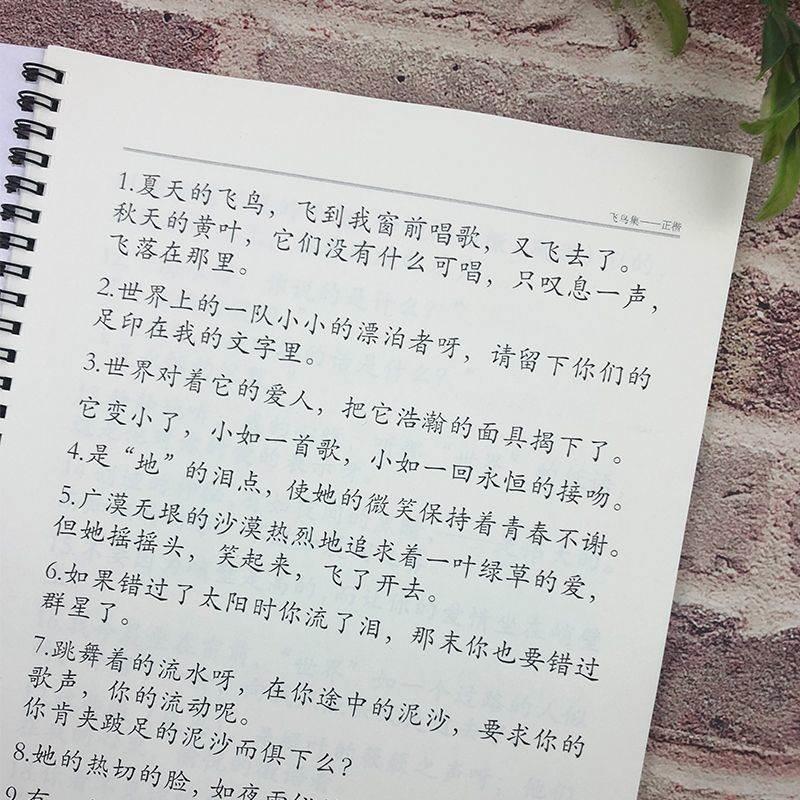 飞鸟集——正楷
1.夏天的飞鸟，飞到我窗前唱歌，又飞去了。
秋天的黄叶，它们没有什么可唱，只叹息一声，
飞落在那里。
2.世界上的一队小小的漂泊者呀，请留下你们的
足印在我的文字里。
3.世界对着它的爱人，把它浩瀚的面具揭下了。
它变小了，小如一首歌，小如一回永恒的接吻。
4.是“地”的泪点，使她的微笑保持着青春不谢。
5.广漠无垠的沙漠热烈地追求着一叶绿草的爱，
但她摇摇头，笑起来，飞了开去。
6.如果错过了太阳时你流了泪，那末你也要错过
群星了。
7.跳舞着的流水呀，在你途中的泥沙，要求你的
歌声，你的流动呢。
你肯夹跛足的泥沙而俱下么？
8.她的热切的脸，如夜雨
9.有